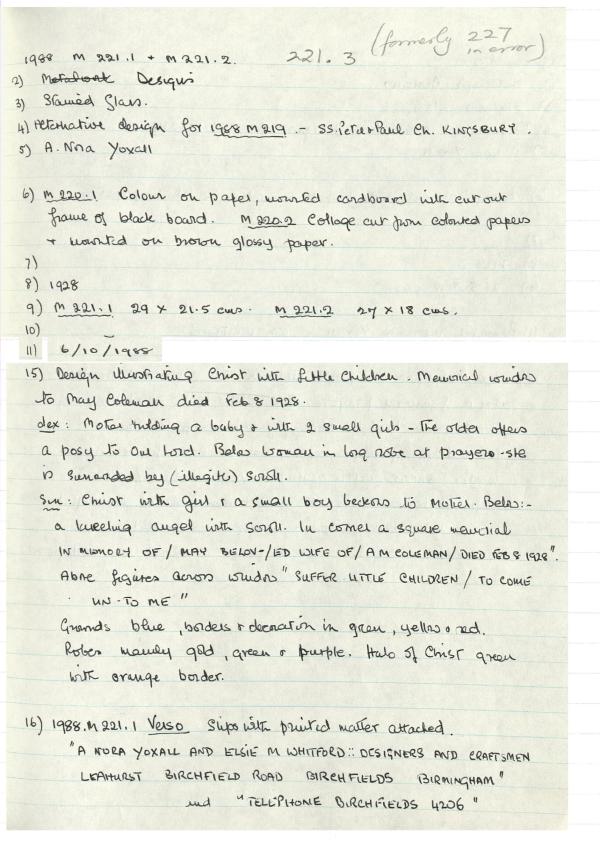 1988 M 221.1 + M 221.2. 221.3 (formerly 227 in error)
2) Metalwork Designs
3) Stained Glass.
4) Alternative design for 1988 M219. - SS. Peter & Paul Ch. KINGSBURY.
5) A. Nora Yoxall
6) M 220.1 Colour on paper, mounted cardboard with cut out
frame of black board. M 220.2 Collage cut from coloured papers
+ mounted on brown glossy paper.
7)
8) 1928
9) M 221.1 29 x 21.5 cms. M 221.2 27 x 18 cms.
10)
11) 6/10/1988
15) Design illustrating Christ with little Children. Memorial window
to May Coleman died Feb 8 1928.
dex: Mother holding a baby & with 2 small girls - the older offers
a posy to Our Lord. Below woman in long robe at prayers - she
is surrounded by (illegible) scroll.
Sin: Christ with girl & a small boy beckons to Mother. Below:-
a kneeling angel with scroll. In corner a square memorial
IN MEMORY OF / MAY BELOV-/ED WIFE OF / A M COLEMAN / DIED FEB 8 1928".
Above figures across window "SUFFER LITTLE CHILDREN / TO COME
UN-TO ME"
Grounds blue, borders & decoration in green, yellow & red.
Robes mainly gold, green & purple. Halo of Christ green
with orange border.
16) 1988.M221.1 Verso Slips with printed matter attached.
"A NORA YOXALL AND ELSIE M WHITFORD :: DESIGNERS AND CRAFTSMEN
LEAHURST BIRCHFIELD ROAD BIRCHFIELDS BIRMINGHAM"
and "TELEPHONE BIRCHFIELDS 4206"